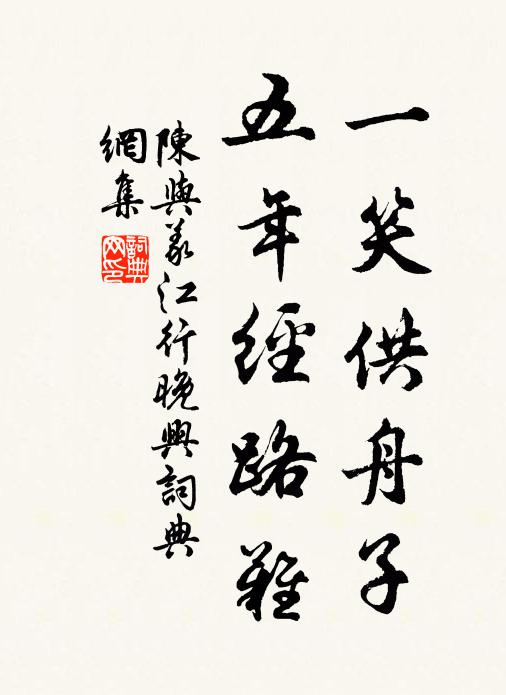 一笑供舟子
五年經路難
陳與義江行晚興詞典
網集
詞典
網印